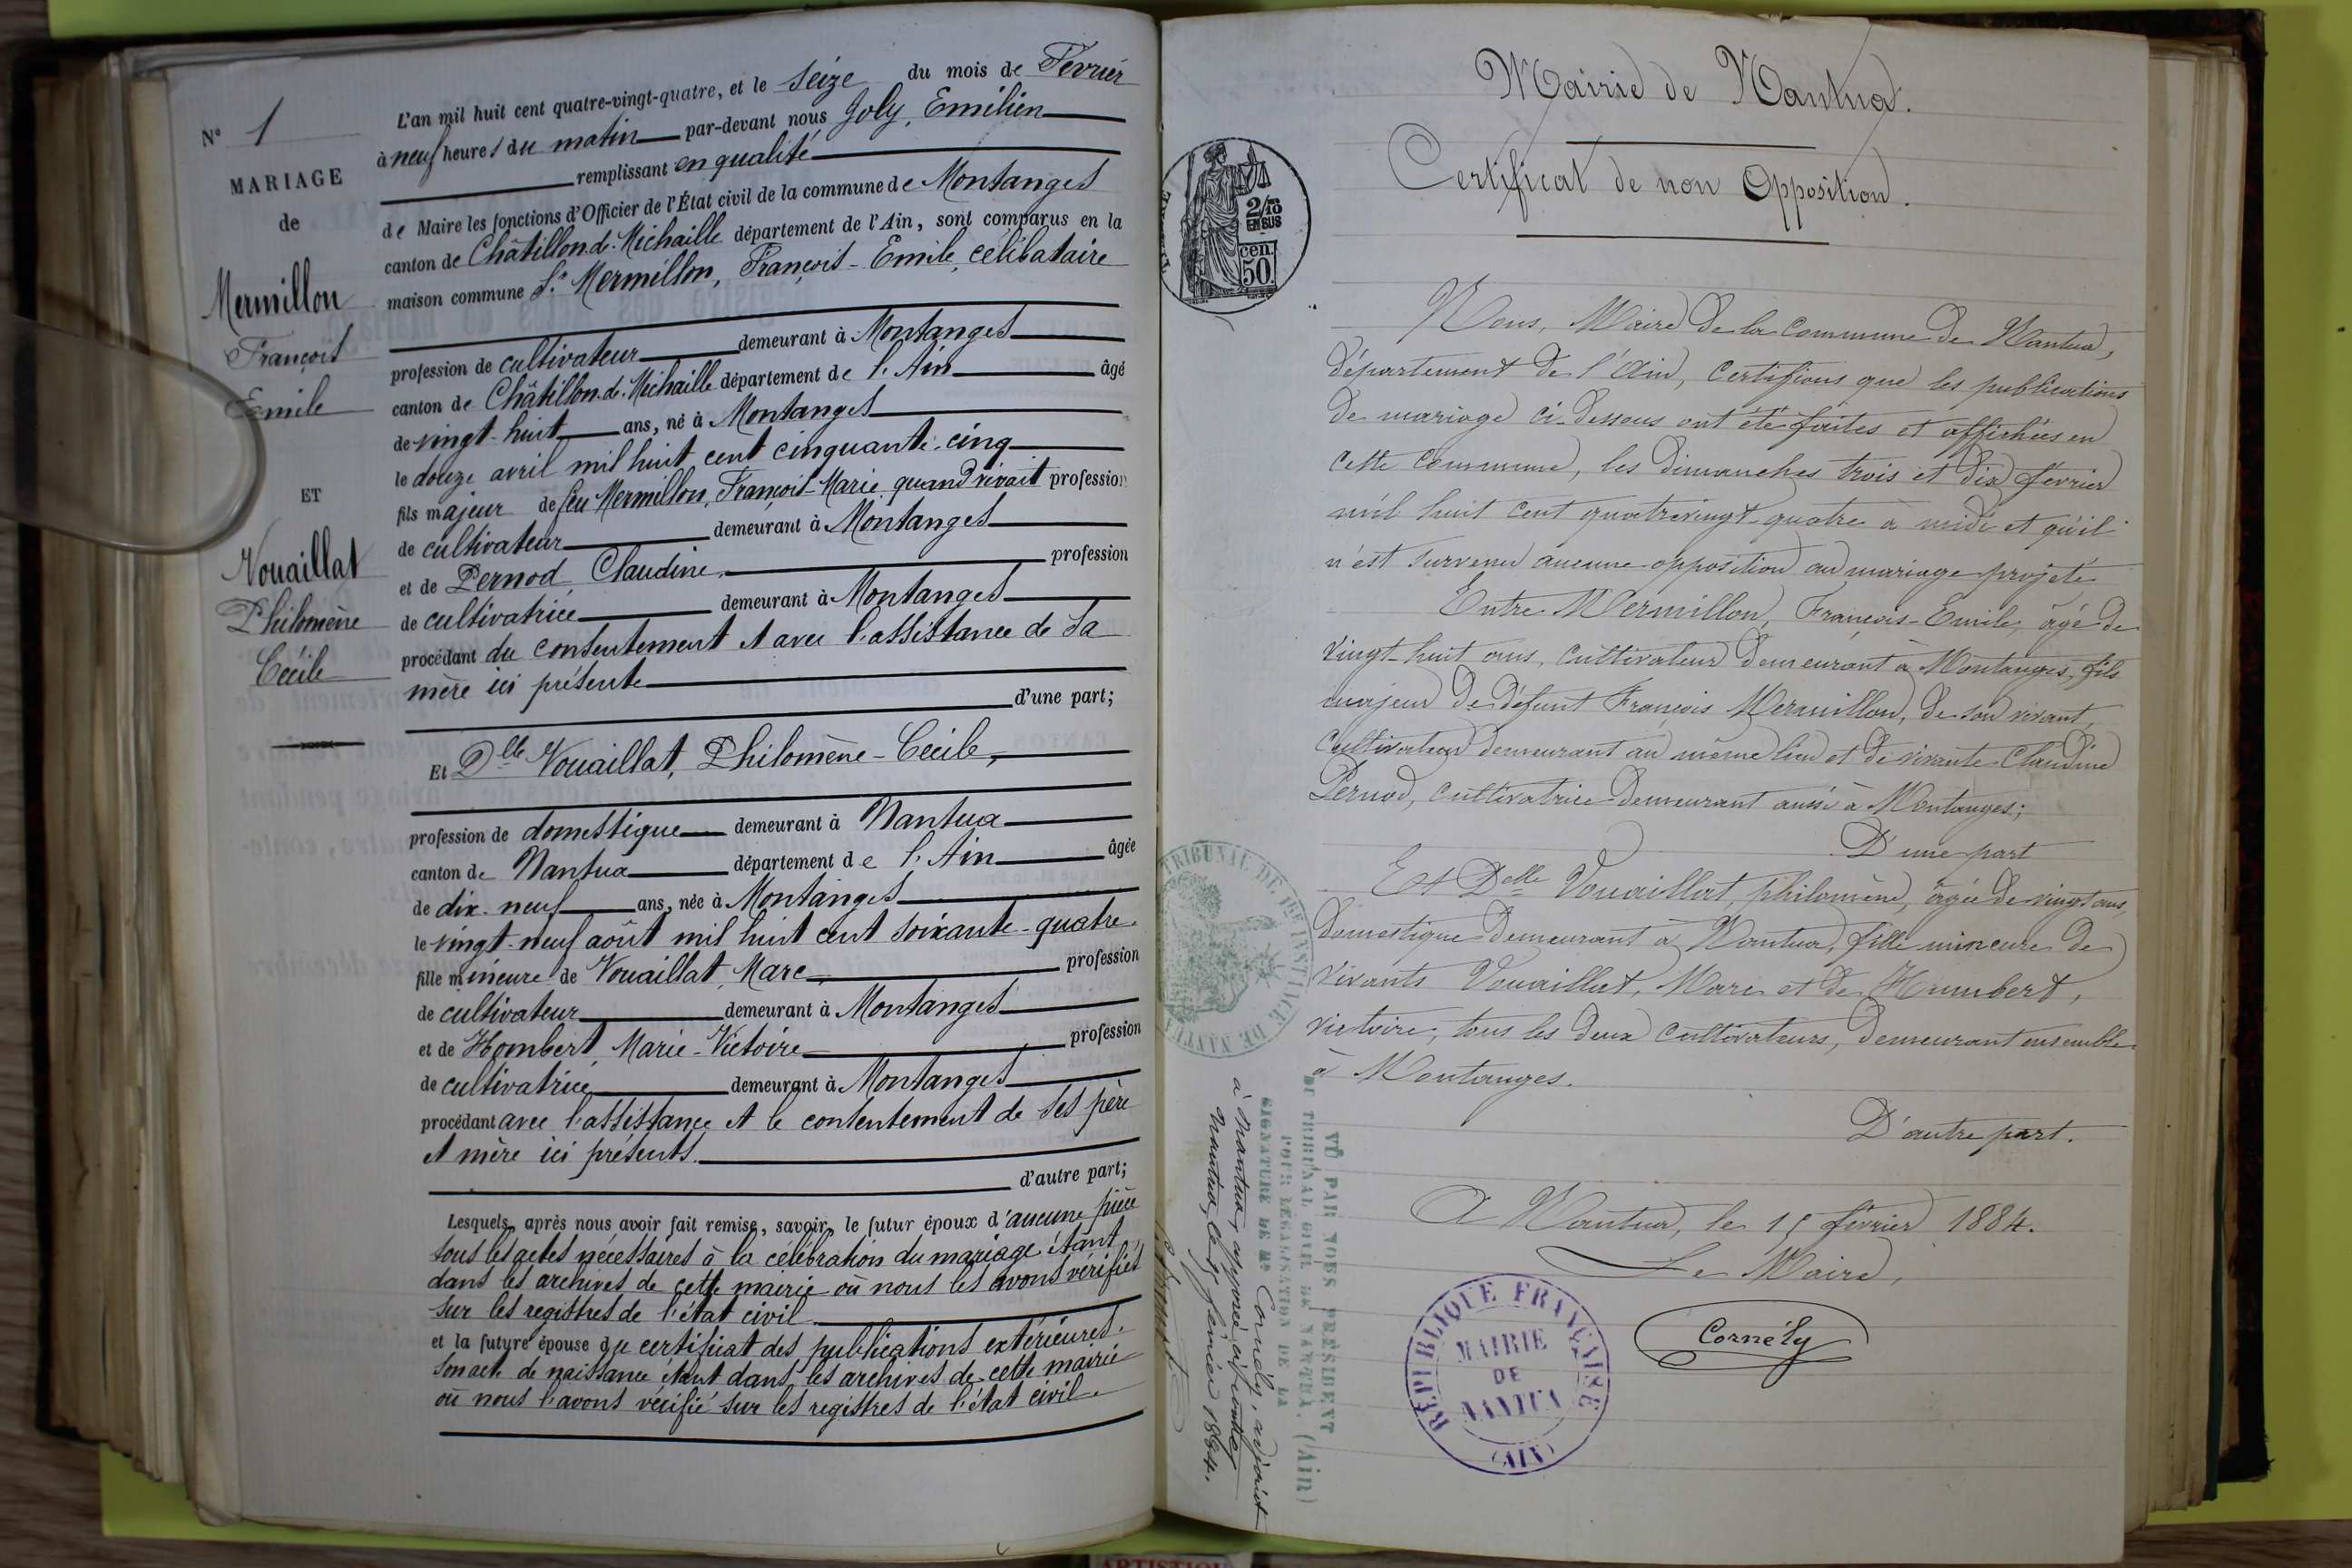 N° 1
MARIAGE
de
Mermillon
François
Emile
ET
Vouaillat
Philomène
Cécile
L'an mil huit cent quatre-vingt-quatre, et le seize du mois de Février
à neuf heures du matin par-devant nous Joly, Emilien
remplissant en qualité
de Maire les fonctions d'Officier de l'État civil de la commune de Montanges
canton de Châtillon de Michaille département de l'Ain, sont comparus en la
maison commune Sr Mermillon, François-Emile, célibataire
profession de cultivateur demeurant à Montanges
canton de Châtillon de Michaille département de l'Ain âgé
de vingt-huit ans, né à Montanges
le douze avril mil huit cent cinquante-cinq
fils majeur de feu Mermillon, François-Marie quand vivait profession
de cultivateur demeurant à Montanges
et de Pernod Claudine profession
de cultivatrice demeurant à Montanges
procédant du consentement et avec l'assistance de sa
mère ici présente
d'une part;
Et Dlle Vouaillat, Philomène-Cécile,
profession de domestique demeurant à Nantua
canton de Nantua département de l'Ain âgée
de dix-neuf ans, née à Montanges
le vingt-neuf août mil huit cent soixante-quatre
fille mineure de Vouaillat, Marc profession
de cultivateur demeurant à Montanges
et de Hombert Marie-Victoire profession
de cultivatrice demeurant à Montanges
procédant avec l'assistance et le consentement de ses père
et mère ici présents.
d'autre part;
Lesquels, après nous avoir fait remise, savoir, le futur époux d'aucune pièce
tous les actes nécessaires à la célébration du mariage étant
dans les archives de cette mairie où nous les avons vérifiés
sur les registres de l'état civil
et la future épouse du certificat des publications extérieures.
Son acte de naissance étant dans les archives de cette mairie
où nous l'avons vérifié sur les registres de l'état civil.
Mairie de Nantua.
Certificat de non Opposition.
2/10
EN SUS
50 cen.
Nous, Maire de la Commune de Nantua,
département de l'Ain, certifions que les publications
de mariage ci-dessous ont été faites et affichées en
cette commune, les dimanches trois et dix février
mil huit cent quatrevingt-quatre à midi et qu'il
n'est survenu aucune opposition au mariage projeté
Entre Mermillon, François-Emile, âgé de
vingt-huit ans, cultivateur demeurant à Montanges, fils
majeur de défunt François Mermillon, de son vivant,
cultivateur demeurant au même lieu et de vivante Claudine
Pernod, cultivatrice demeurant aussi à Montanges;
D'une part
Et Delle Vouaillat, philomène, âgée de vingt ans,
domestique demeurant à Nantua, fille mineure de
vivants Vouaillat, Marc et de Humbert,
victoire, tous les deux cultivateurs, demeurant ensemble
à Montanges.
D'autre part.
A Nantua, le 15 février 1884.
Le Maire,
Cornély
RÉPUBLIQUE FRANÇAISE
MAIRIE
DE
NANTUA
(AIN)
TRIBUNAL DE 1RE INSTANCE DE NANTUA
VU PAR NOUS PRÉSIDENT
DU TRIBUNAL CIVIL DE NANTUA, (Ain)
POUR LÉGALISATION DE LA
SIGNATURE DE Mr Cornély, adjoint
à Nantua, apposée ci-contre
Nantua, le 15 février 1884.